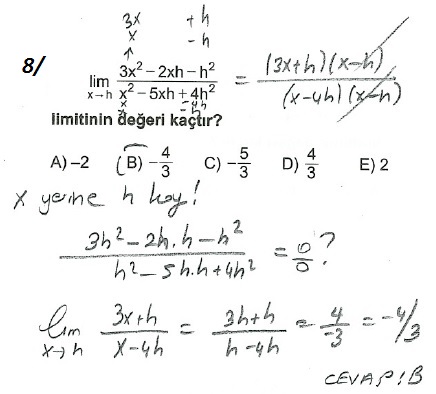 3x +h
x -h
8/ lim x→h (3x² – 2xh – h²)/(x² – 5xh + 4h²) = (3x+h)(x-h)/(x-4h)(x-h)
x -4h
x -h
limitinin değeri kaçtır?
A) –2 B) –4/3 C) –5/3 D) 4/3 E) 2
x yerine h koy!
(3h² – 2h.h – h²)/(h² – 5h.h + 4h²) = 0/0 ?
lim x→h (3x+h)/(x-4h) = (3h+h)/(h-4h) = 4/-3 = -4/3
CEVAP: B